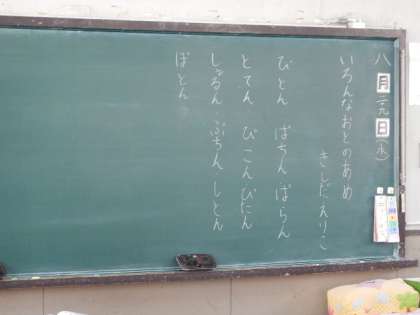 八月二九日(水)
いろんなおとのあめ
きしだえりこ
ぴとん ぱちん ぱらん
とてん ぴこん・ぴたん
しゃるん・ぷちん・しとん
ぽとん